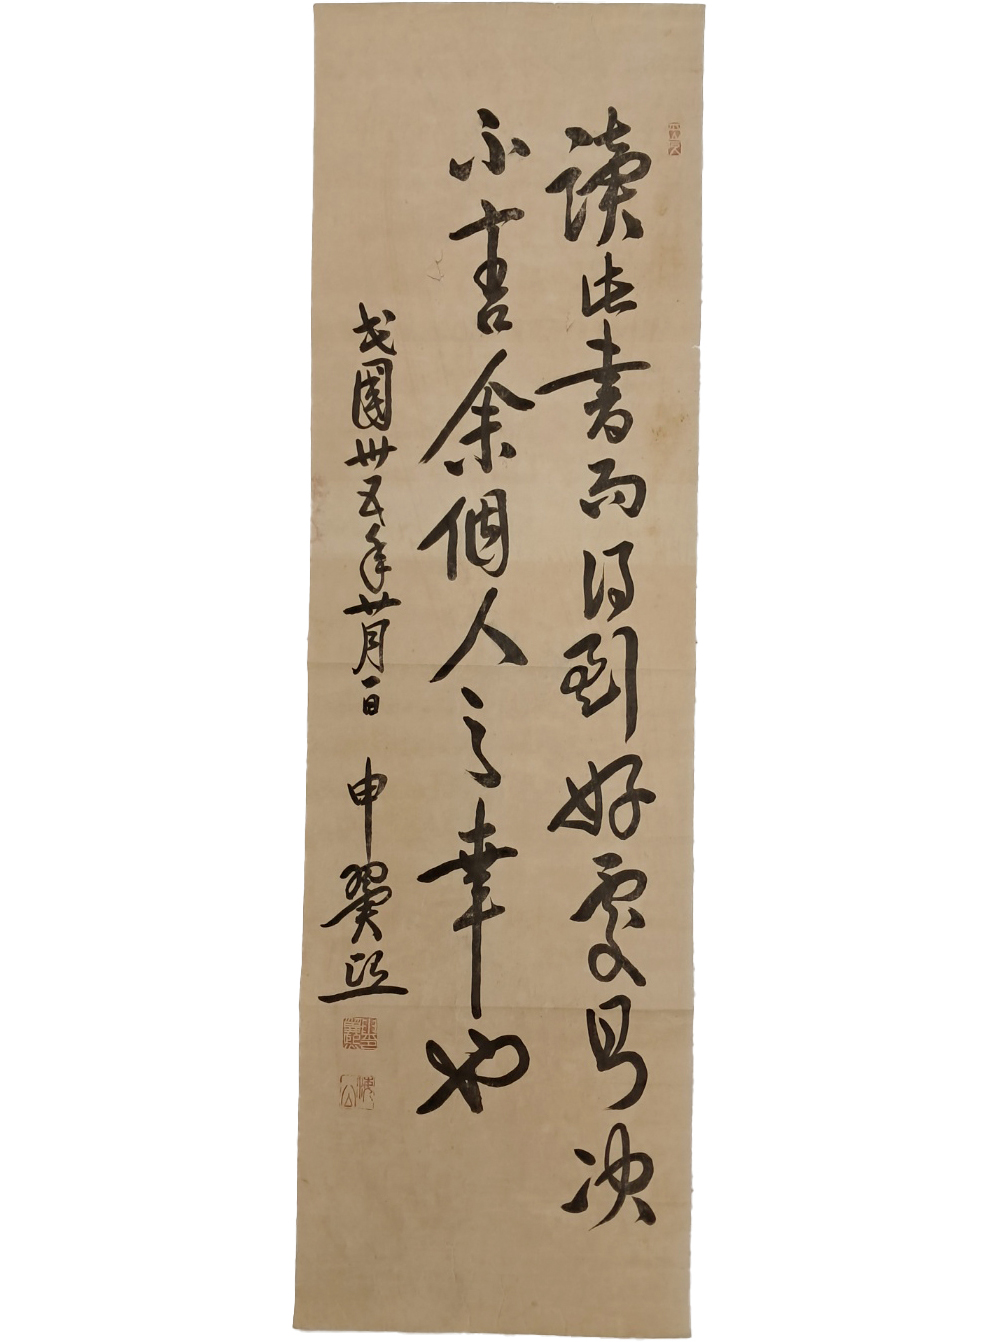 讀此書而得到好處者決
不害余個人之幸也
民國卅五年廿月一日 申翼熙
海公